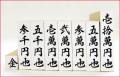 壱拾萬円也
五萬円也
参萬円也
弐萬円也
壱萬円也
五千円也
参千円也
金